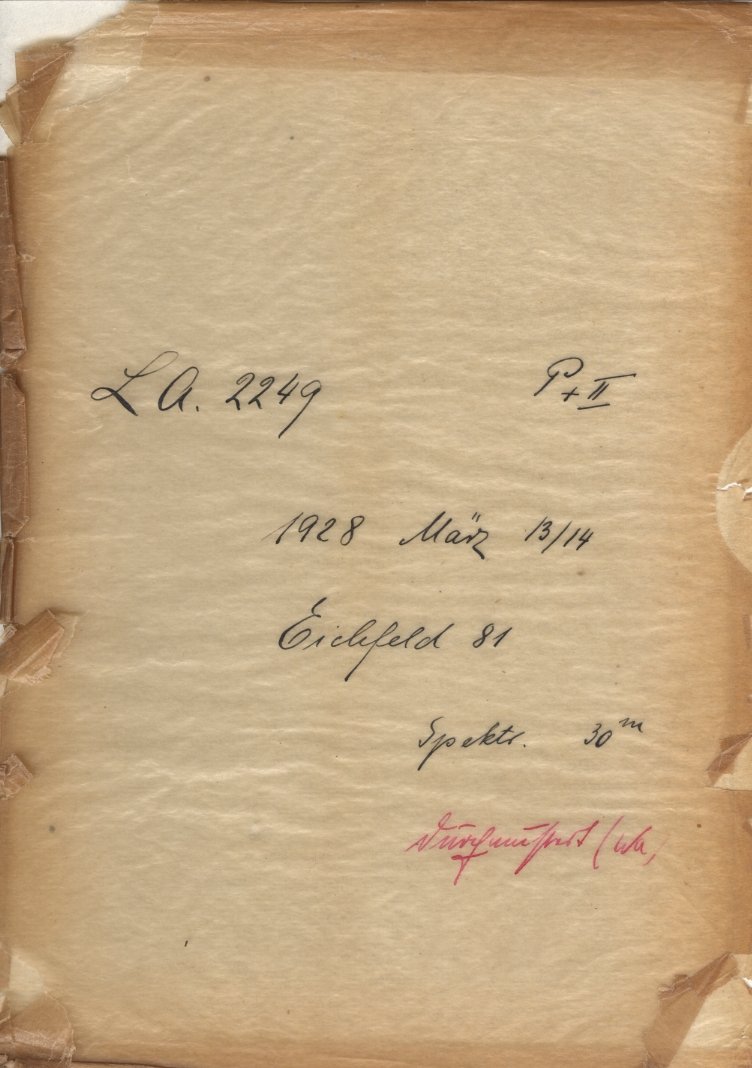 L A. 2249 P+II
1928 März 13/14
Eichfeld 81
Spektr. 30m
Durchmustert